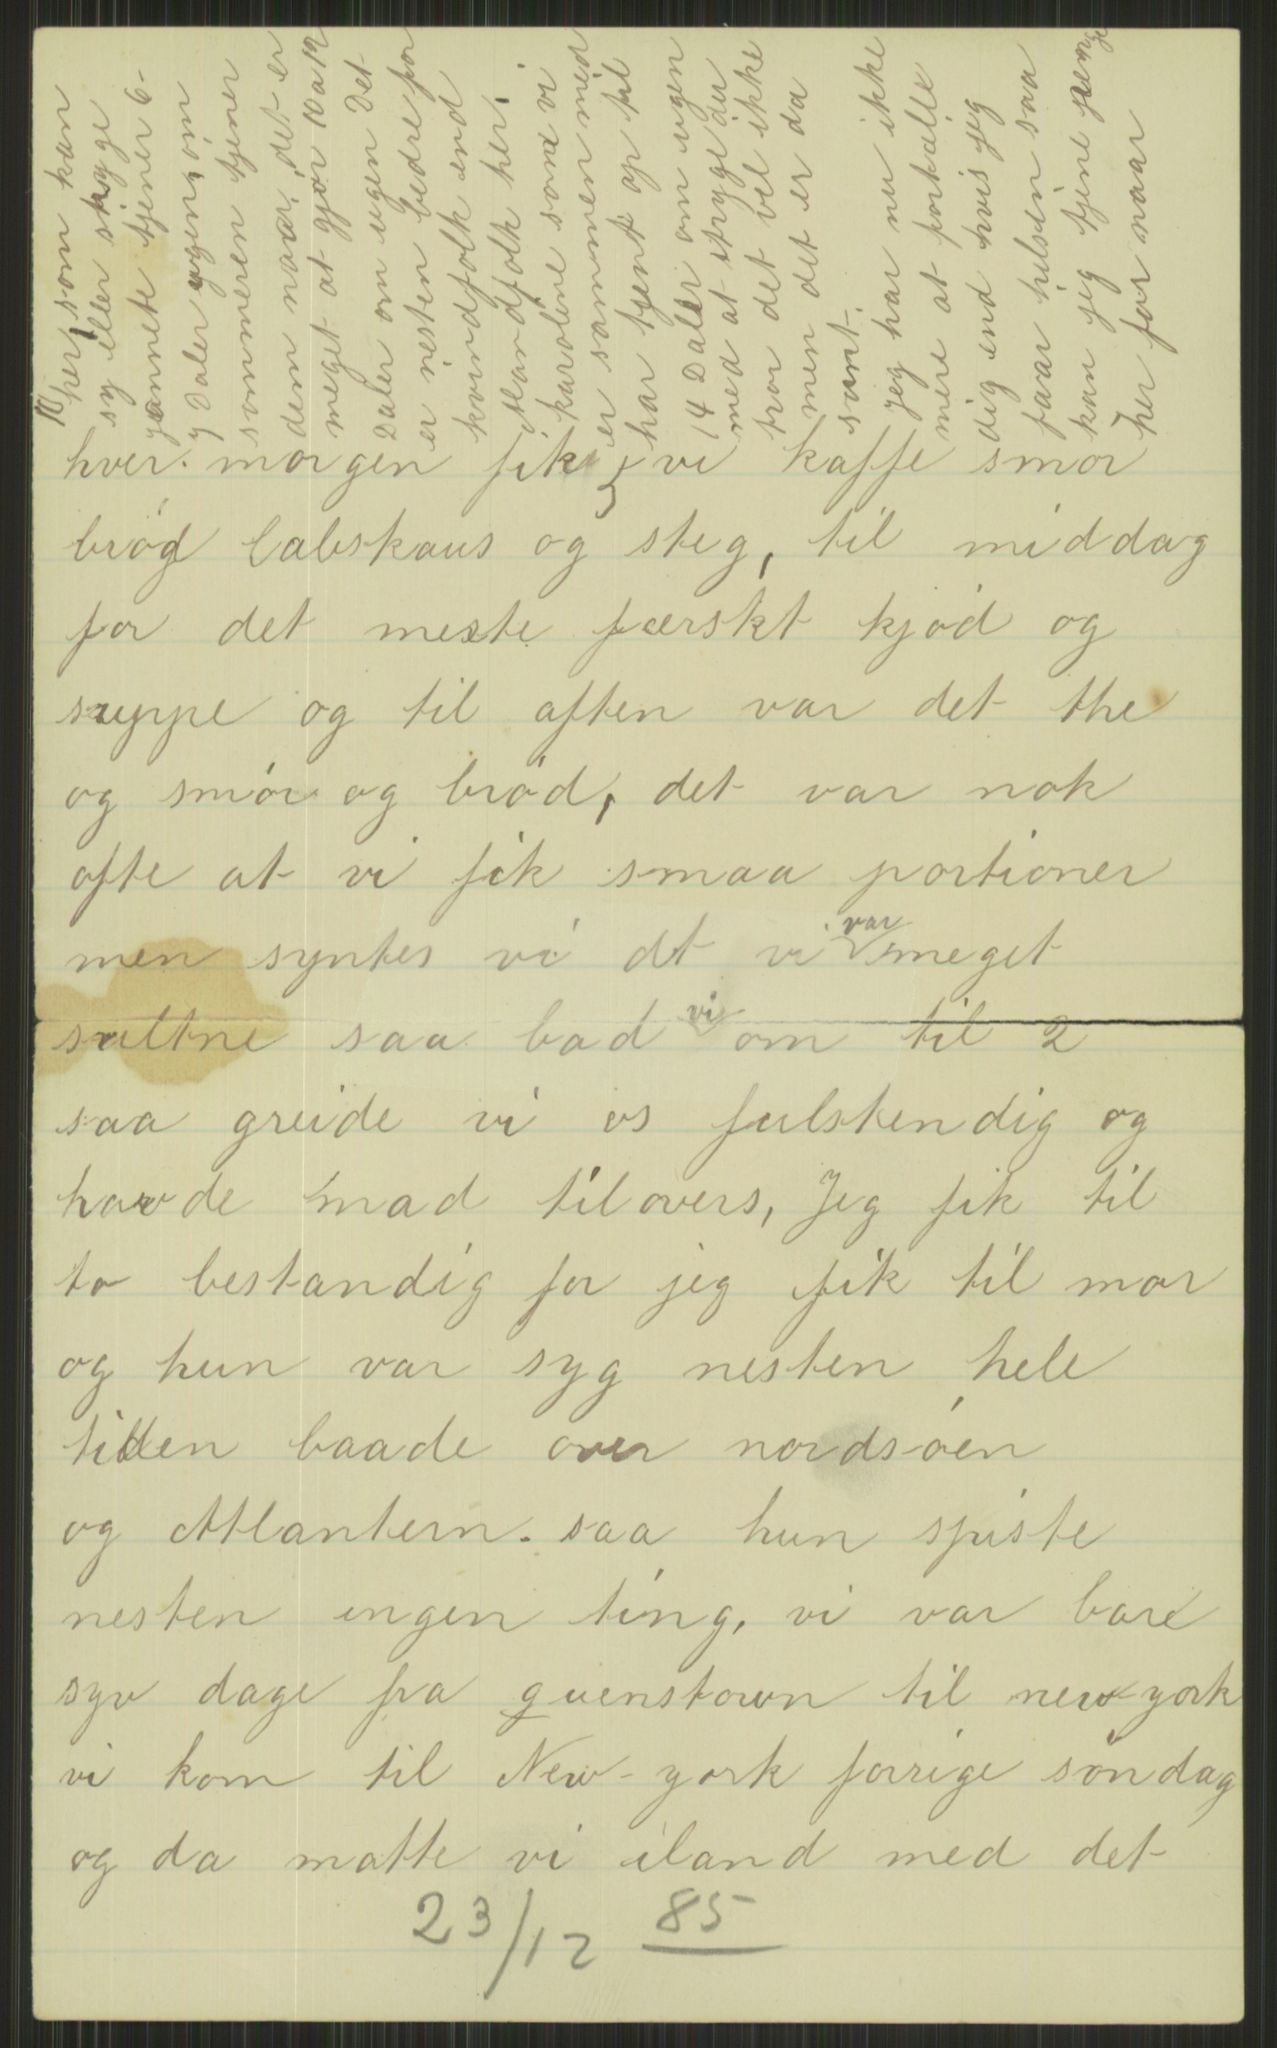 her, som kan
sy eller stryge
jannete tjener 6-
7 Daler ugen, om
sommeren tjener
dem naar, det er
meget at gjør 10 a 12
Daler om ugen Det
er nesten bedre for
kvindfolk end
Mandfolk her,
karoline som vi
er sammen med
har tjent op til
14 Daler om ugen
med at stryge du
tror det vel ikke
men det er da
sant.
Jeg har nu ikke
mere at fortælle
dig end hvis jeg
faar helsen saa
kan jeg tjene penge
her for naar
hver morgen fik vi kaffe smør
brød labskaus og steg, til middag
for det meste færskt kjød og
suppe og til aften var det the
og smør og brød, det var nok
ofte at vi fik smaa portioner
men syntes vi dt vi var meget
sultne saa bad vi om til 2
saa greide vi os fulstendig og
havde mad tilovers, Jeg fik til
to bestandig for jeg fik til mor
og hun var syg nesten hele
tiden baade over nordsøen
og Atlantern. saa hun spiste
nesten ingen ting, vi var bare
syv dage fra quenstown til new-york
vi kom til New-york forrige søndag
og da matte vi iland med det
23/12 85